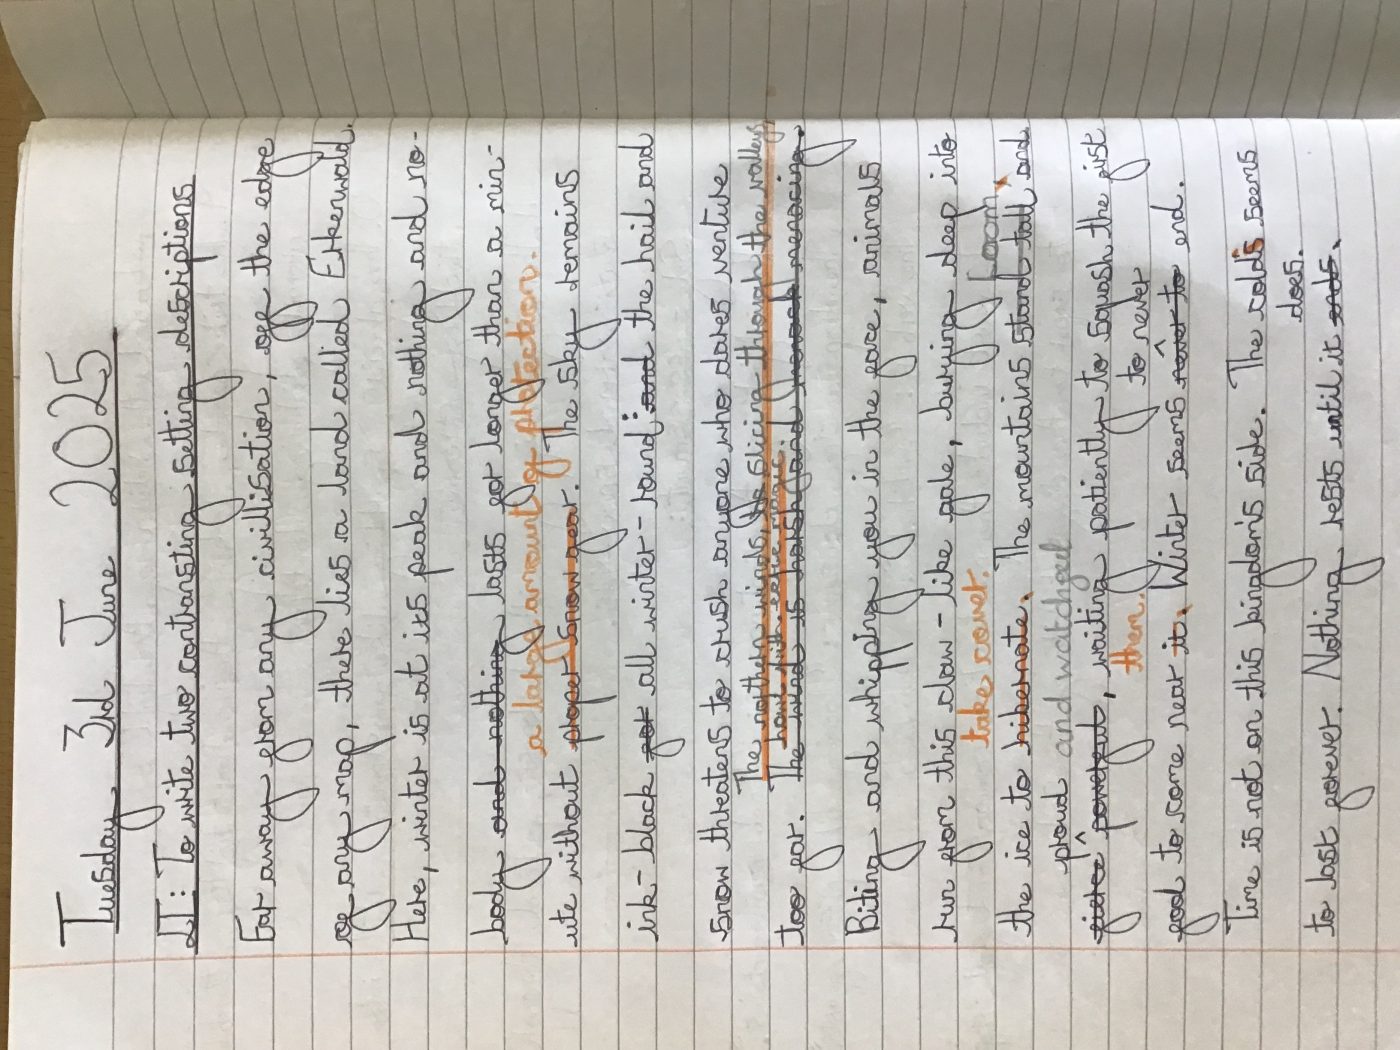 Tuesday 3rd June 2025
LI: To write two contrasting setting descriptions
Far away from any civillisation, off the edge
of any map, there lies a land called Erkenwald.
Here, winter is at its peak and nothing and no-
body and nothing lasts for longer than a min-
a large amount of protection.
ute without proper snow gear. The sky remains
ink-black for all winter-round; and the hail and
snow threatens to crush anyone who dares venture
The northern winds, slicing through the valley
howl with
too far. The wind is harsh and menacing.
Biting and whipping you in the face, animals
run from this claw-like gale, burying deep into
take cover. loom,
the ice to hibernate. The mountains stand tall and
proud and watchful
fierce powerful, waiting patiently to squash the first
them. to never
fool to come near it. Winter seems never to end.
Time is not on this kingdom's side. The cold's seems
does.
to last forever. Nothing rests until it ends.